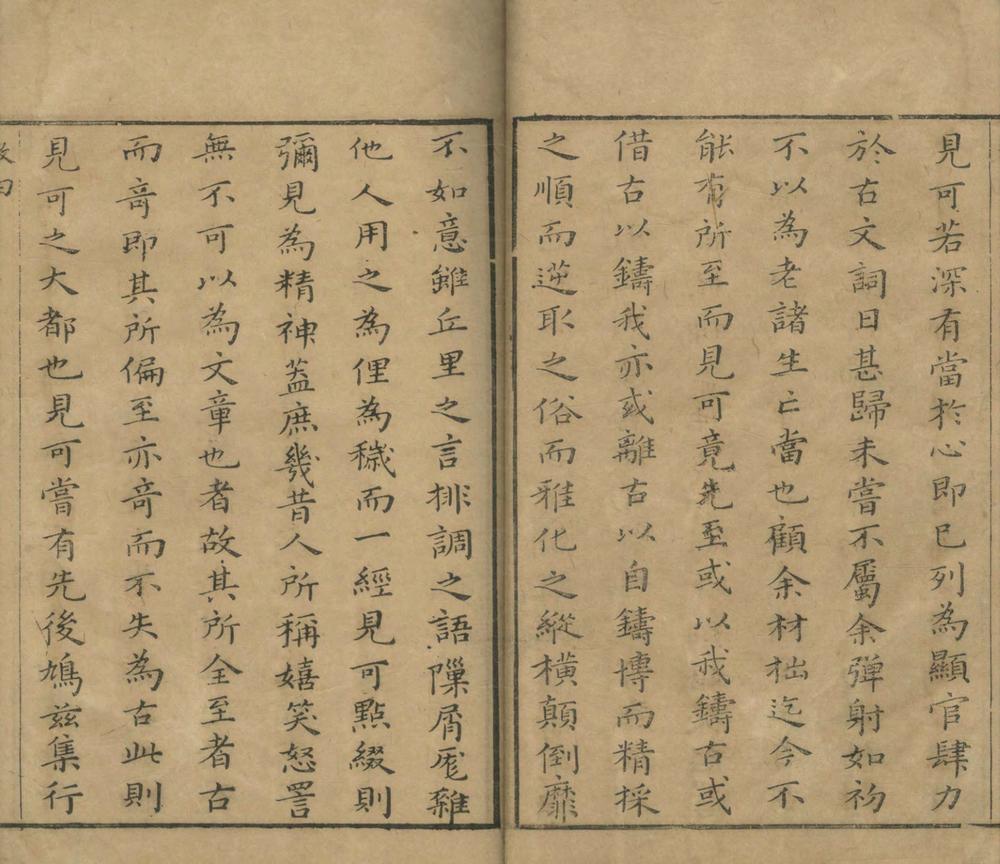 見可若深有當扵心即已列為顯官肆力
於古文詞日甚歸未嘗不屬余彈射如初
不以為老諸生亡當也顧余材拙迄今不
能有所至而見可竟先至或以我鑄古或
借古以鑄我亦或離古以自鑄博而精採
之順而逆取之俗而雅化之縱橫顛倒靡
不如意雖丘里之言排調之語隟屑厖雜
他人用之為俚為穢而一經見可㸃綴則
彌見為精神蓋庶幾昔人所稱嬉笑怒詈
無不可以為文章也者故其所全至者古
而竒即其所偏至亦竒而不失為古此則
見可之大都也見可嘗有先後鳩兹集行